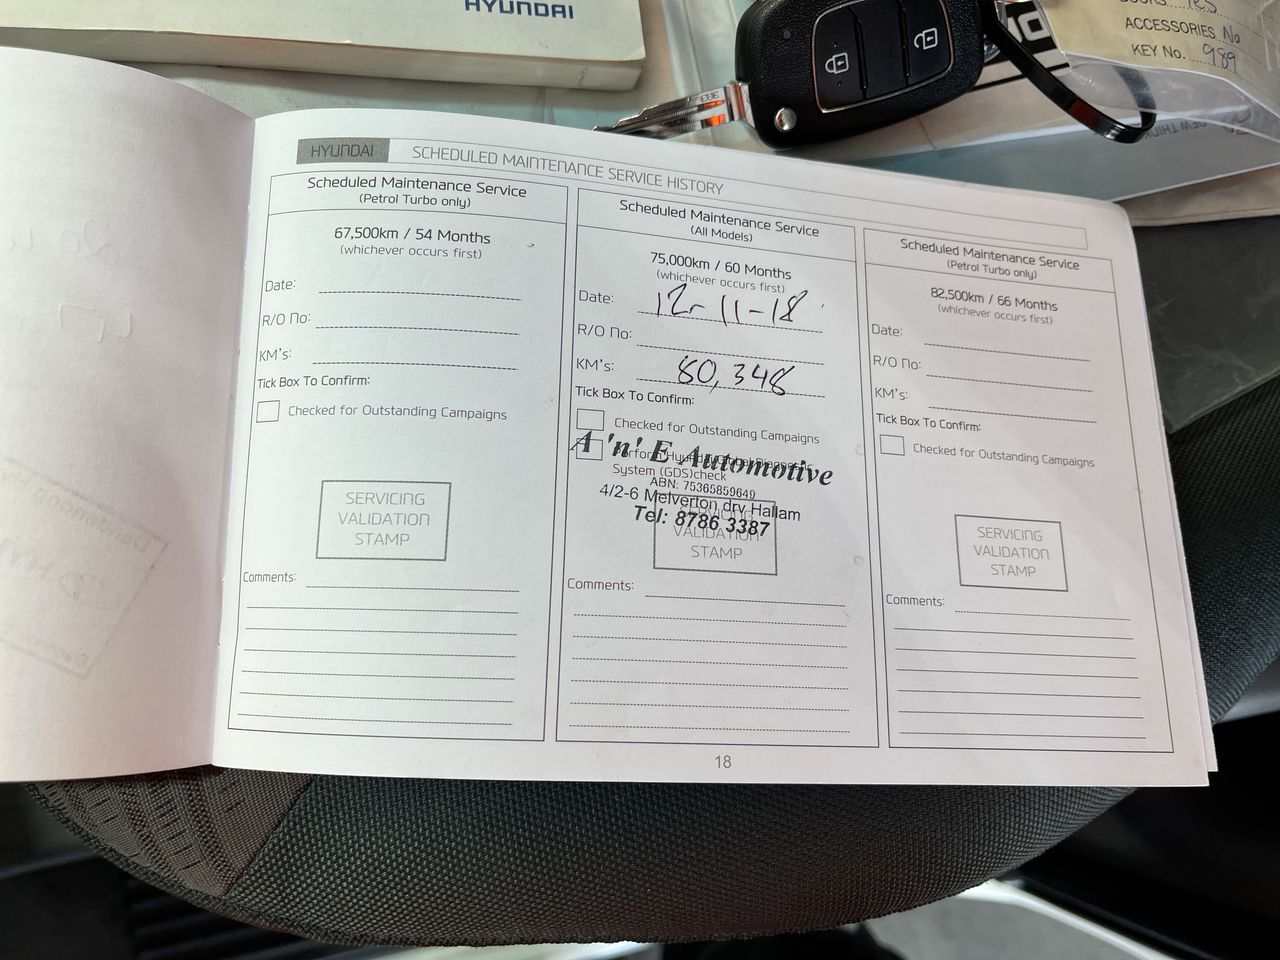 HYUNDAI
BOOKS Yes
ACCESSORIES No
KEY No. 989
NEW THINK
HYUNDAI SCHEDULED MAINTENANCE SERVICE HISTORY
Scheduled Maintenance Service
(Petrol Turbo only)
67,500km / 54 Months
(whichever occurs first)
Date:
R/O No:
KM's:
Tick Box To Confirm:
Checked for Outstanding Campaigns
SERVICING
VALIDATION
STAMP
Comments:
Scheduled Maintenance Service
(All Models)
75,000km / 60 Months
(whichever occurs first)
Date: 12-11-18
R/O No:
KM's: 80,348
Tick Box To Confirm:
Checked for Outstanding Campaigns
Perform Hyundai Global Diagnostic
System (GDS)check
A 'n' E Automotive
ABN: 75365859649
4/2-6 Melverton drv Hallam
Tel: 8786 3387
SERVICING
VALIDATION
STAMP
Comments:
Scheduled Maintenance Service
(Petrol Turbo only)
82,500km / 66 Months
(whichever occurs first)
Date:
R/O No:
KM's:
Tick Box To Confirm:
Checked for Outstanding Campaigns
SERVICING
VALIDATION
STAMP
Comments:
18